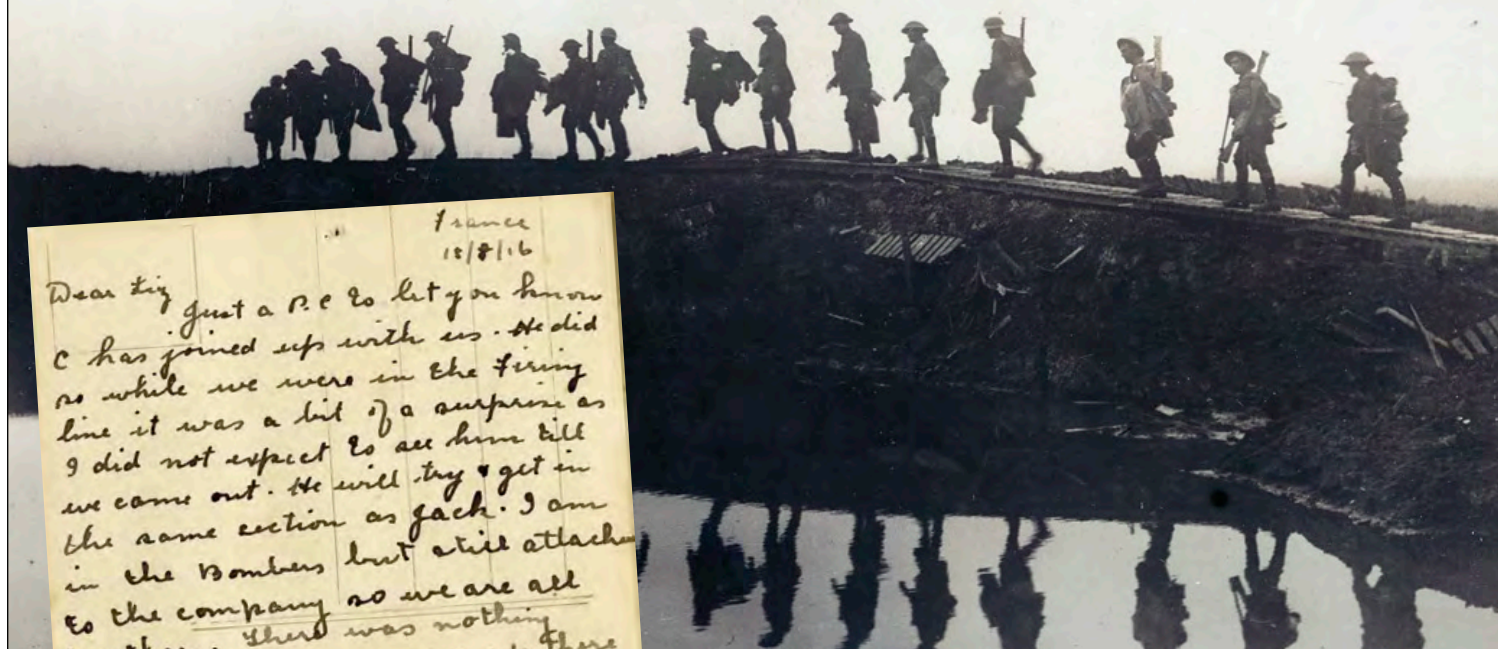 France
18/8/16
Dear Liz
Just a P.C to let you know
C has joined up with us. He did
so while we were in the Firing
line it was a bit of a surprise as
I did not expect to see him till
we came out. He will try & get in
the same section as Jack. I am
in the Bombers but still attached
to the company so we are all
There was nothing
there